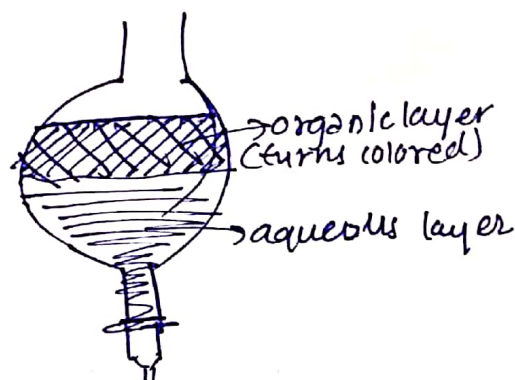 organic layer
(turns colored)
aqueous layer